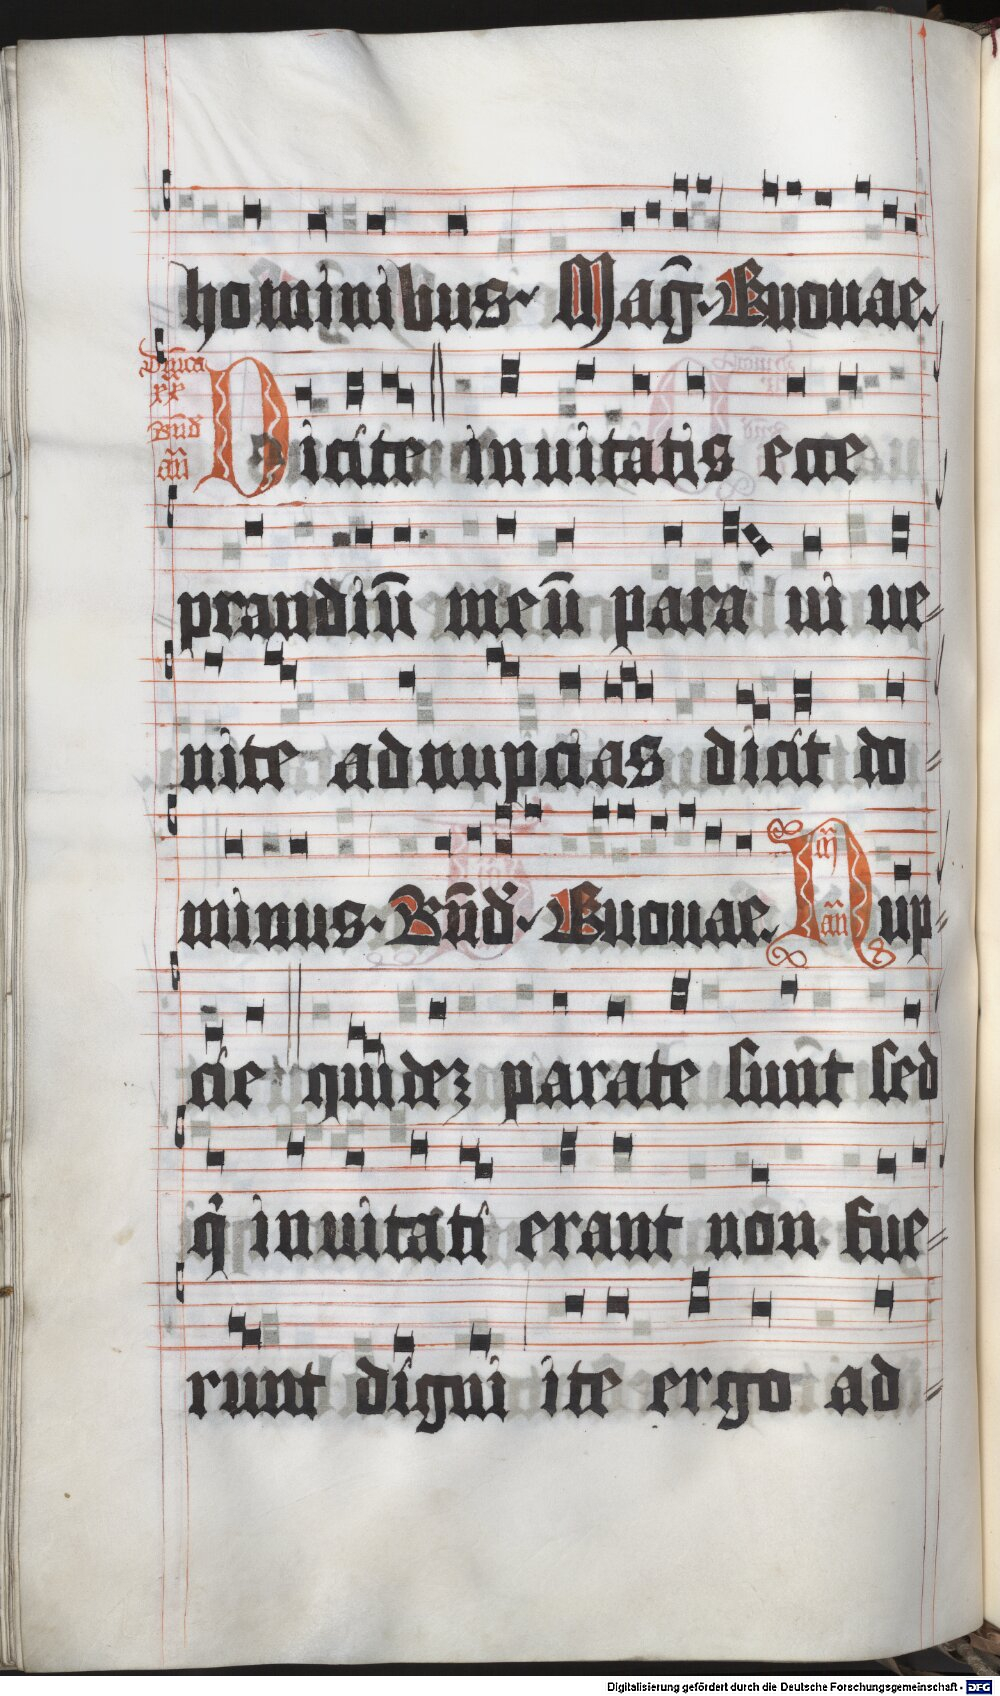 hominibus. Mag̅. Euouae.
Dn̅ica
xx
Bn̅d
an̅
Dicite inuitatis ecce
prandiu̅ meu̅ para ui ue
nite ad nupcias dicit do
minus. Bn̅d. Euouae. Nup
m̅
an̅
cie quidez parate sunt sed
q̇ inuitati erant non fue
runt digni ite ergo ad
Digitalisierung gefördert durch die Deutsche Forschungsgemeinschaft - DFG